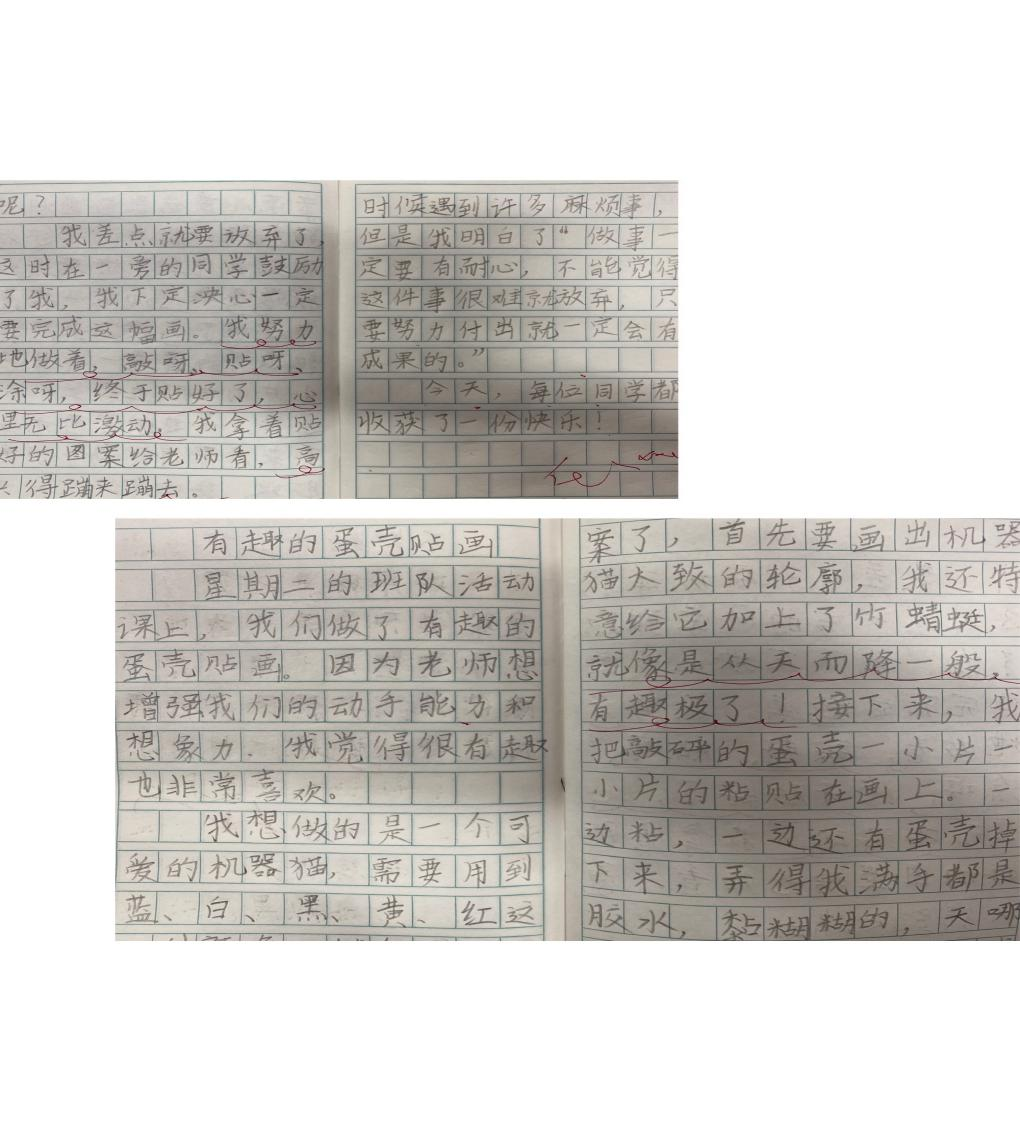 呢？
我差点就要放弃了，
这时在一旁的同学鼓励
了我，我下定决心一定
要完成这幅画。我努力
地做着，敲呀、贴呀、
涂呀，终于贴好了，心
里无比激动。我拿着贴
好的图案给老师看，高
兴得蹦来蹦去。
时候遇到许多麻烦事，
但是我明白了“做事一
定要有耐心，不能觉得
这件事很难就放弃，只
要努力付出就一定会有
成果的。”
今天，每位同学都
收获了一份快乐！
有趣的蛋壳贴画
星期二的班队活动
课上，我们做了有趣的
蛋壳贴画。因为老师想
增强我们的动手能力和
想象力．我觉得很有趣
也非常喜欢。
我想做的是一个可
爱的机器猫，需要用到
蓝、白、黑、黄、红这
案了，首先要画出机器
猫大致的轮廓，我还特
意给它加上了竹蜻蜓，
就像是从天而降一般，
有趣极了！接下来，我
把敲碎的蛋壳一小片一
小片的粘贴在画上。一
边粘，一边还有蛋壳掉
下来，弄得我满手都是
胶水，黏糊糊的，天哪